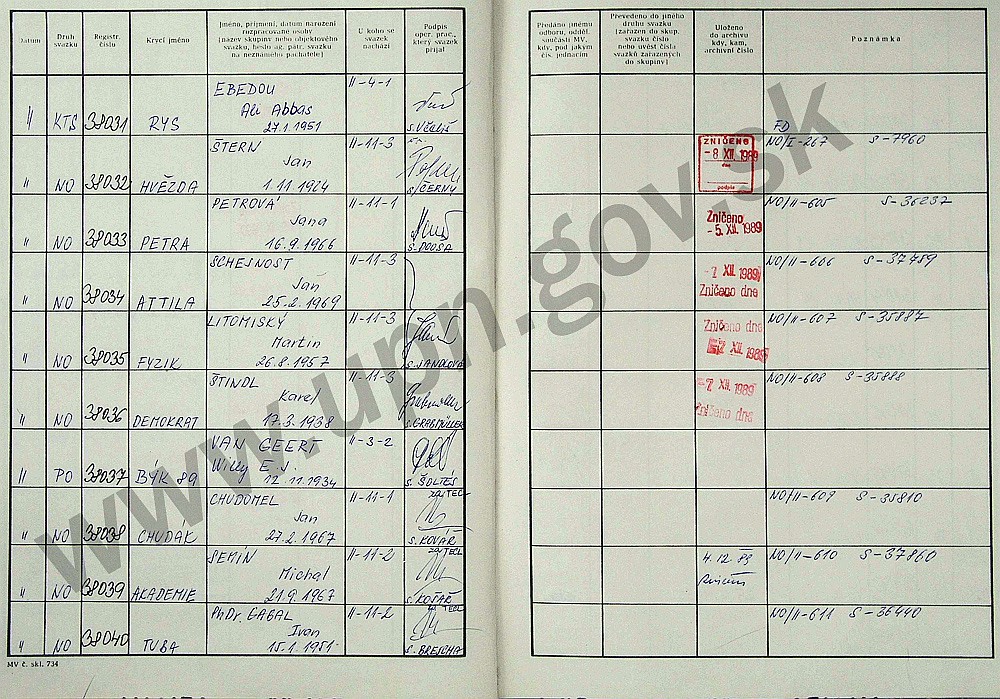 Datum
Druh svazku
Registr. číslo
Krycí jméno
Jméno, příjmení, datum narození
rozpracované osoby
[název skupiny nebo objektového
svazku, heslo ag. pátr. svazku
na neznámého pachatele]
U koho se
svazek
nachází
Podpis
oper. prac.,
který svazek
přijal
Předáno jinému
odboru, odděl.
součásti MV,
kdy, pod jakým
čís. jednacím
Převedeno do jiného
druhu svazku
[zařazen do skup.
svazku číslo
nebo uvést čísla
svazků zařazených
do skupiny]
Uloženo
do archivu
kdy, kam,
archivní číslo
Poznámka
EBEDOU II-4-1
Ali Abbas
" KTS 38031 RYS 27.1.1951
FD
ŠTERN II-11-3 ZNIČENO NO/I-267 S-7960
Jan -8 XII. 1989
dne
" NO 38032 HVĚZDA 1.11.1924 s. ČERNÝ
podpis
PETROVÁ II-11-1 NO/II-605 S-36237
Jana Zničeno
-5. XII. 1989
" NO 38033 PETRA 16.9.1966 s. DOUŠA
SCHESNOST II-11-3 NO/II-606 S-37459
Jan -7 XII. 1989
" NO 38034 ATTILA 25.2.1969 Zničeno dne
LITOMISKÝ II-11-3 NO/II-607 S-35887
Martin Zničeno dne
XII. 1989
" NO 38035 FYZIK 26.8.1957 s. JANDLOVÁ
ŠTINDL II-11-3 NO/II-608 S-35888
Karel -7 XII. 1989
" NO 38036 DEMOKRAT 17.3.1938 s. GRABMÜLLER Zničeno dne
VAN GEERT II-3-2
Willy E.J.
" PO 38037 BÝK 89 12.11.1934 s. ŠOLTÉS
CHUDOMEL II-11-1 NO/II-609 S-35810
Jan
" NO 38038 CHUDÁK 27.2.1967 s. KOVÁŘ
SEMÍN II-11-2 NO/II-610 S-37860
Michal 4.12.89
" NO 38039 AKADEMIE 21.9.1967 s. KOŠAŘ
PhDr. GABAL II-11-2 NO/II-611 S-36440
Ivan
" NO 38040 TUBA 15.1.1951 s. BRESCHA
MV č. skl. 734
www.upn.gov.sk